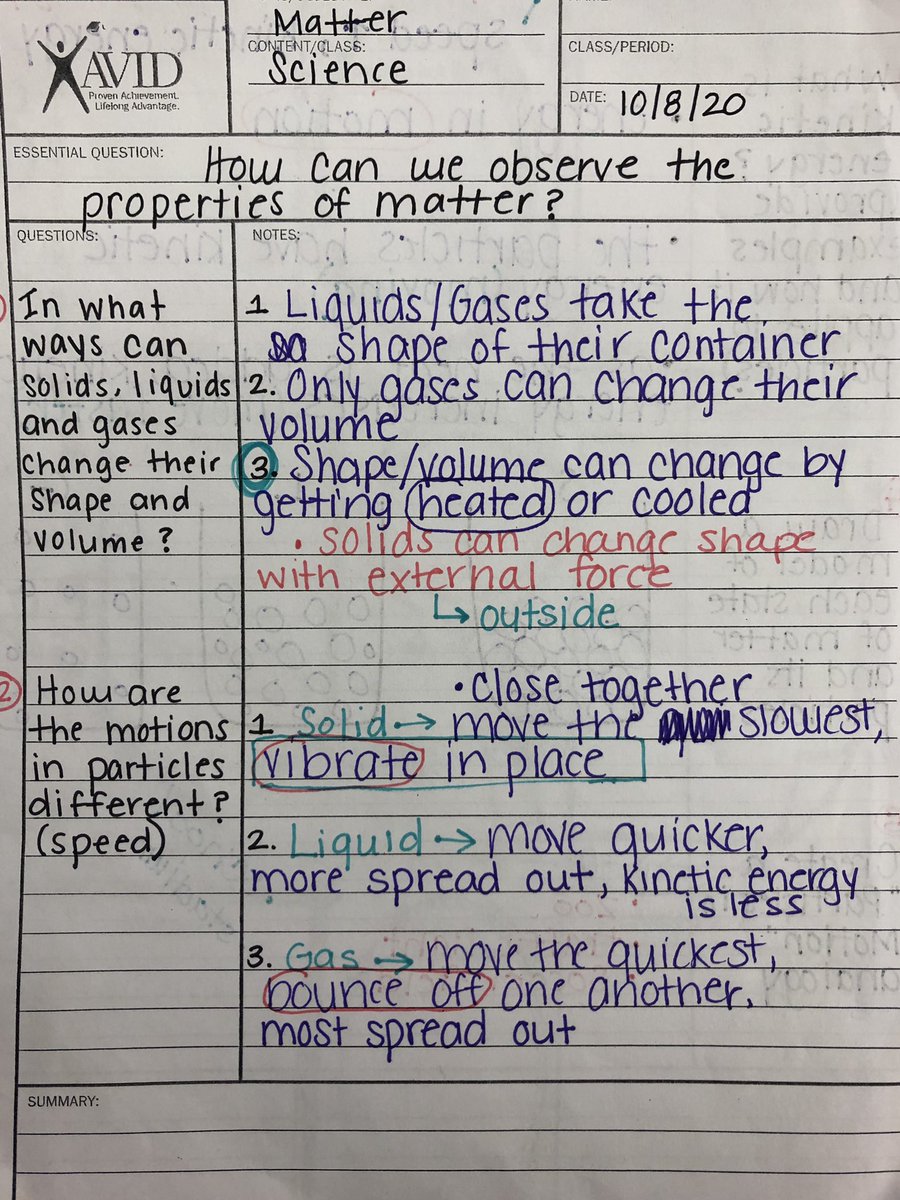 Matter
CONTENT/CLASS:
Science
CLASS/PERIOD:
AVID
Proven Achievement.
Lifelong Advantage.
DATE: 10/8/20
ESSENTIAL QUESTION: How can we observe the
properties of matter?
QUESTIONS:
In what
ways can
solids, liquids
and gases
change their
shape and
volume?
2 How are
the motions
in particles
different?
(speed)
NOTES:
1 Liquids/Gases take the
shape of their container
2. Only gases can change their
volume
3. Shape/volume can change by
getting heated or cooled
• solids can change shape
with external force
↳ outside
• close together
1 Solid → move the slowest,
vibrate in place
2. Liquid → move quicker,
more spread out, kinetic energy
is less
3. Gas → move the quickest,
bounce off one another,
most spread out
SUMMARY: